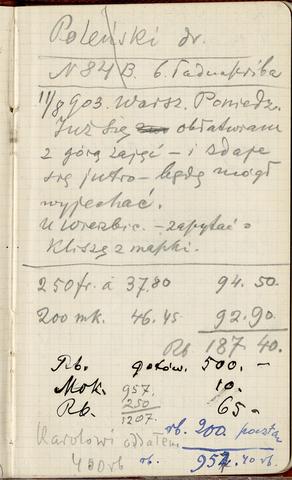 Poleński dr.
N 84 B. 6.
11/8 903. Warsz. Poniedz.
Już się obłatwiam
z górą zajęć – i zdaje
się jutro – będę mógł
wyjechać.
U Wierzbic. – zapytać o
kliszę z mapki.
250 fr. à 37.80 94.50.
200 mk. 46.45 92.90.
Rb 187 40.
Rb. gotów. 500. –
Mok. 957. 10. –
Rb. 250 65 –
1207.
rb. 200
Karolowi oddałem
400 rb rb. 952.40 rb